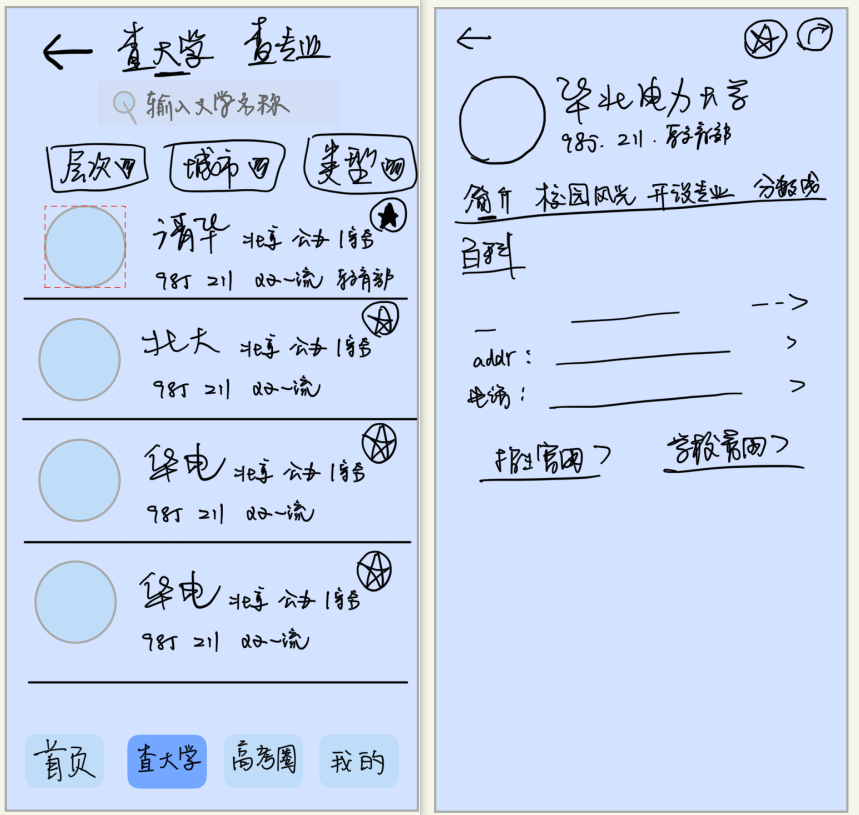 查大学 查专业
输入大学名称
层次 城市 类型
清华 北京 公办 1
985 211 双一流 教育部
北大 北京 公办 1
985 211 双一流
华电 北京 公办 1
985 211 双一流
华电 北京 公办 1
985 211 双一流
首页 查大学 高考圈 我的
华北电力大学
985. 211. 教育部
简介 校园风光 开设专业 分数线
百科
addr:
电话:
招生官网 >
学校官网 >